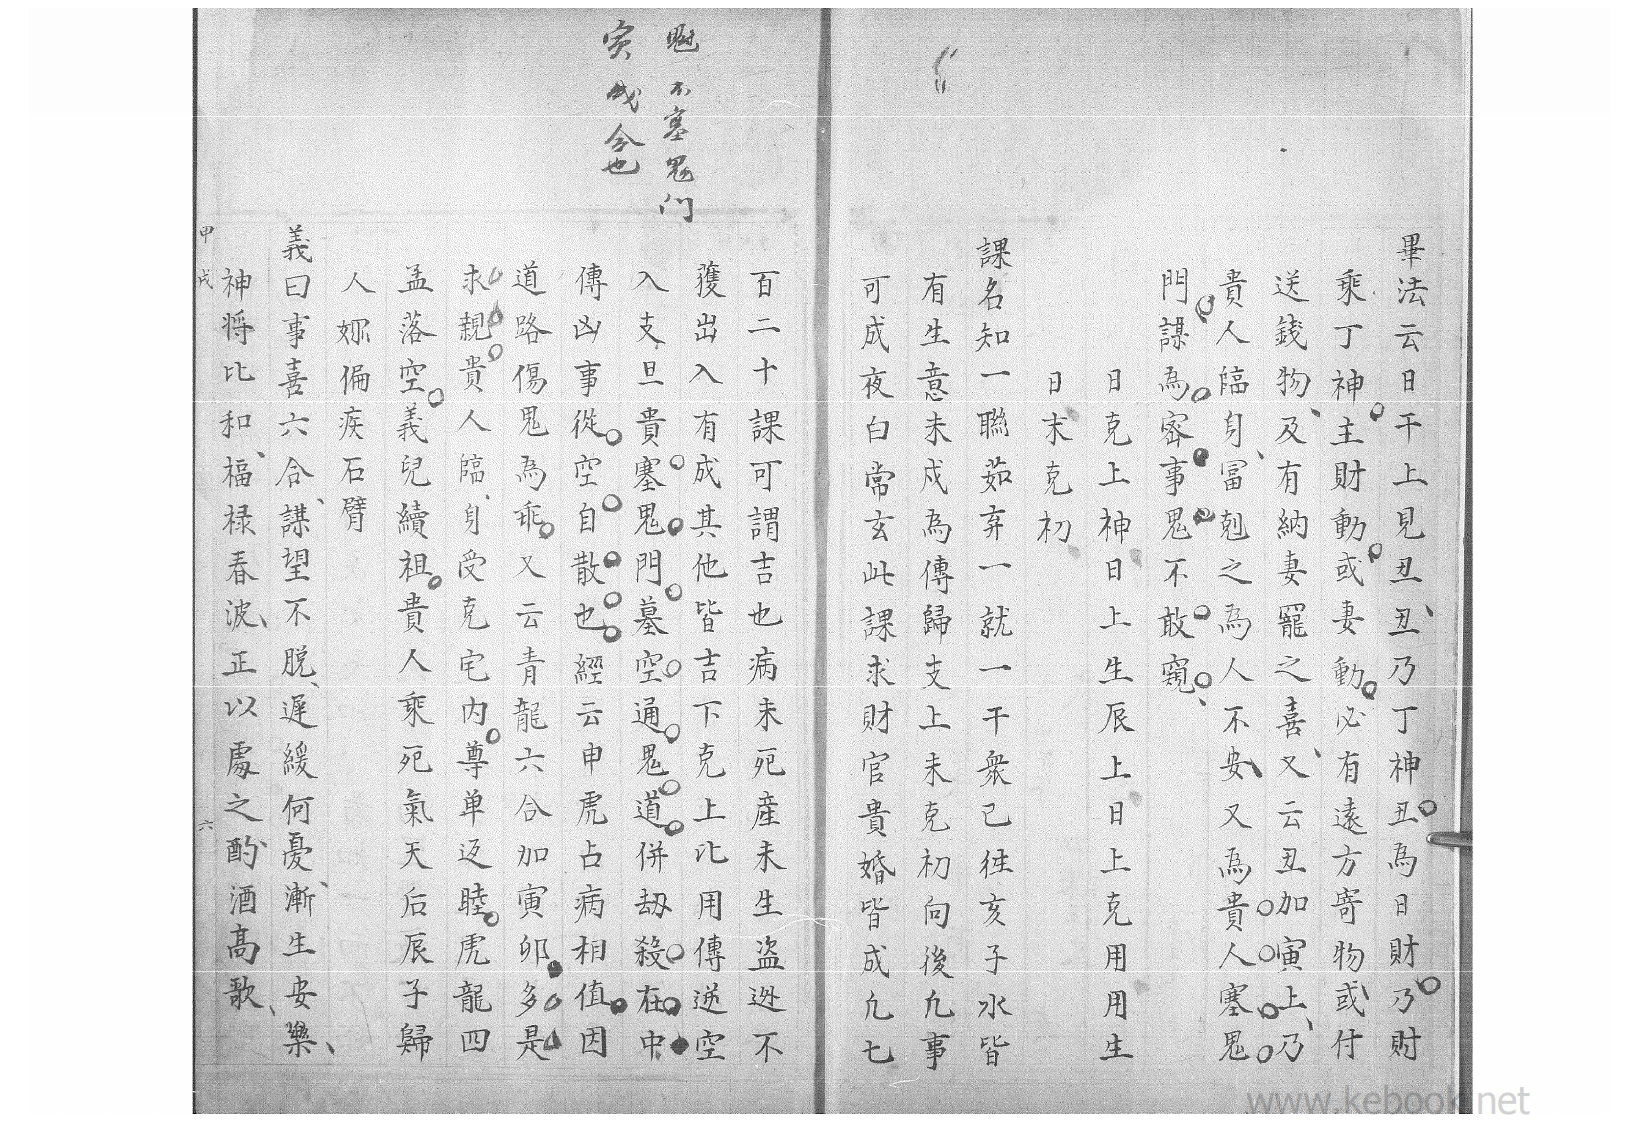 畢法云日干上見丑丑乃丁神丑為日財乃財
乘丁神主財動或妻動必有遠方寄物或付
送錢物及有納妻寵之喜又云丑加寅上乃
貴人臨身冨剋之為人不安又為貴人塞鬼
門謀為密事鬼不敢窺
日克上神日上生辰上日上克用用生
日末克初
課名知一聯茹弃一就一干衆已徃亥子水皆
有生意未成為傳歸支上未克初向後凢事
可成夜白常玄此課求財官貴婚皆成凢七
百二十課可謂吉也病未死產未生盜迯不
獲出入有成其他皆吉下克上比用傳逆空
入支旦貴塞鬼門墓空通鬼道併劫殺在中
傳凶事從空自散也經云申虎占病相值因
道路傷鬼為乖又云青龍六合加寅卯多是
求親貴人臨身受克宅内尊单返睦虎龍四
孟落空義兒續祖貴人乘死氣天后辰子歸
人妳偏疾石臂
義曰事喜六合謀望不脱遲緩何憂漸生安樂
神将比和福禄春波正以處之酌酒高歌
不塞鬼門
寅成合也
甲戌
六
www.kebook.net